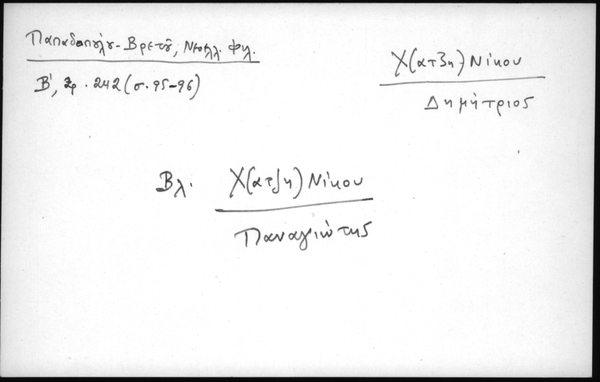 Παπαδοπούλου-Βρετοῦ, Νεοελλ. Φιλ.
Β', ἀρ. 242 (σ. 95-96)
Χ(ατζη) Νίκου
Δημήτριος
Βλ. Χ(ατζη) Νίκου
Παναγιώτης